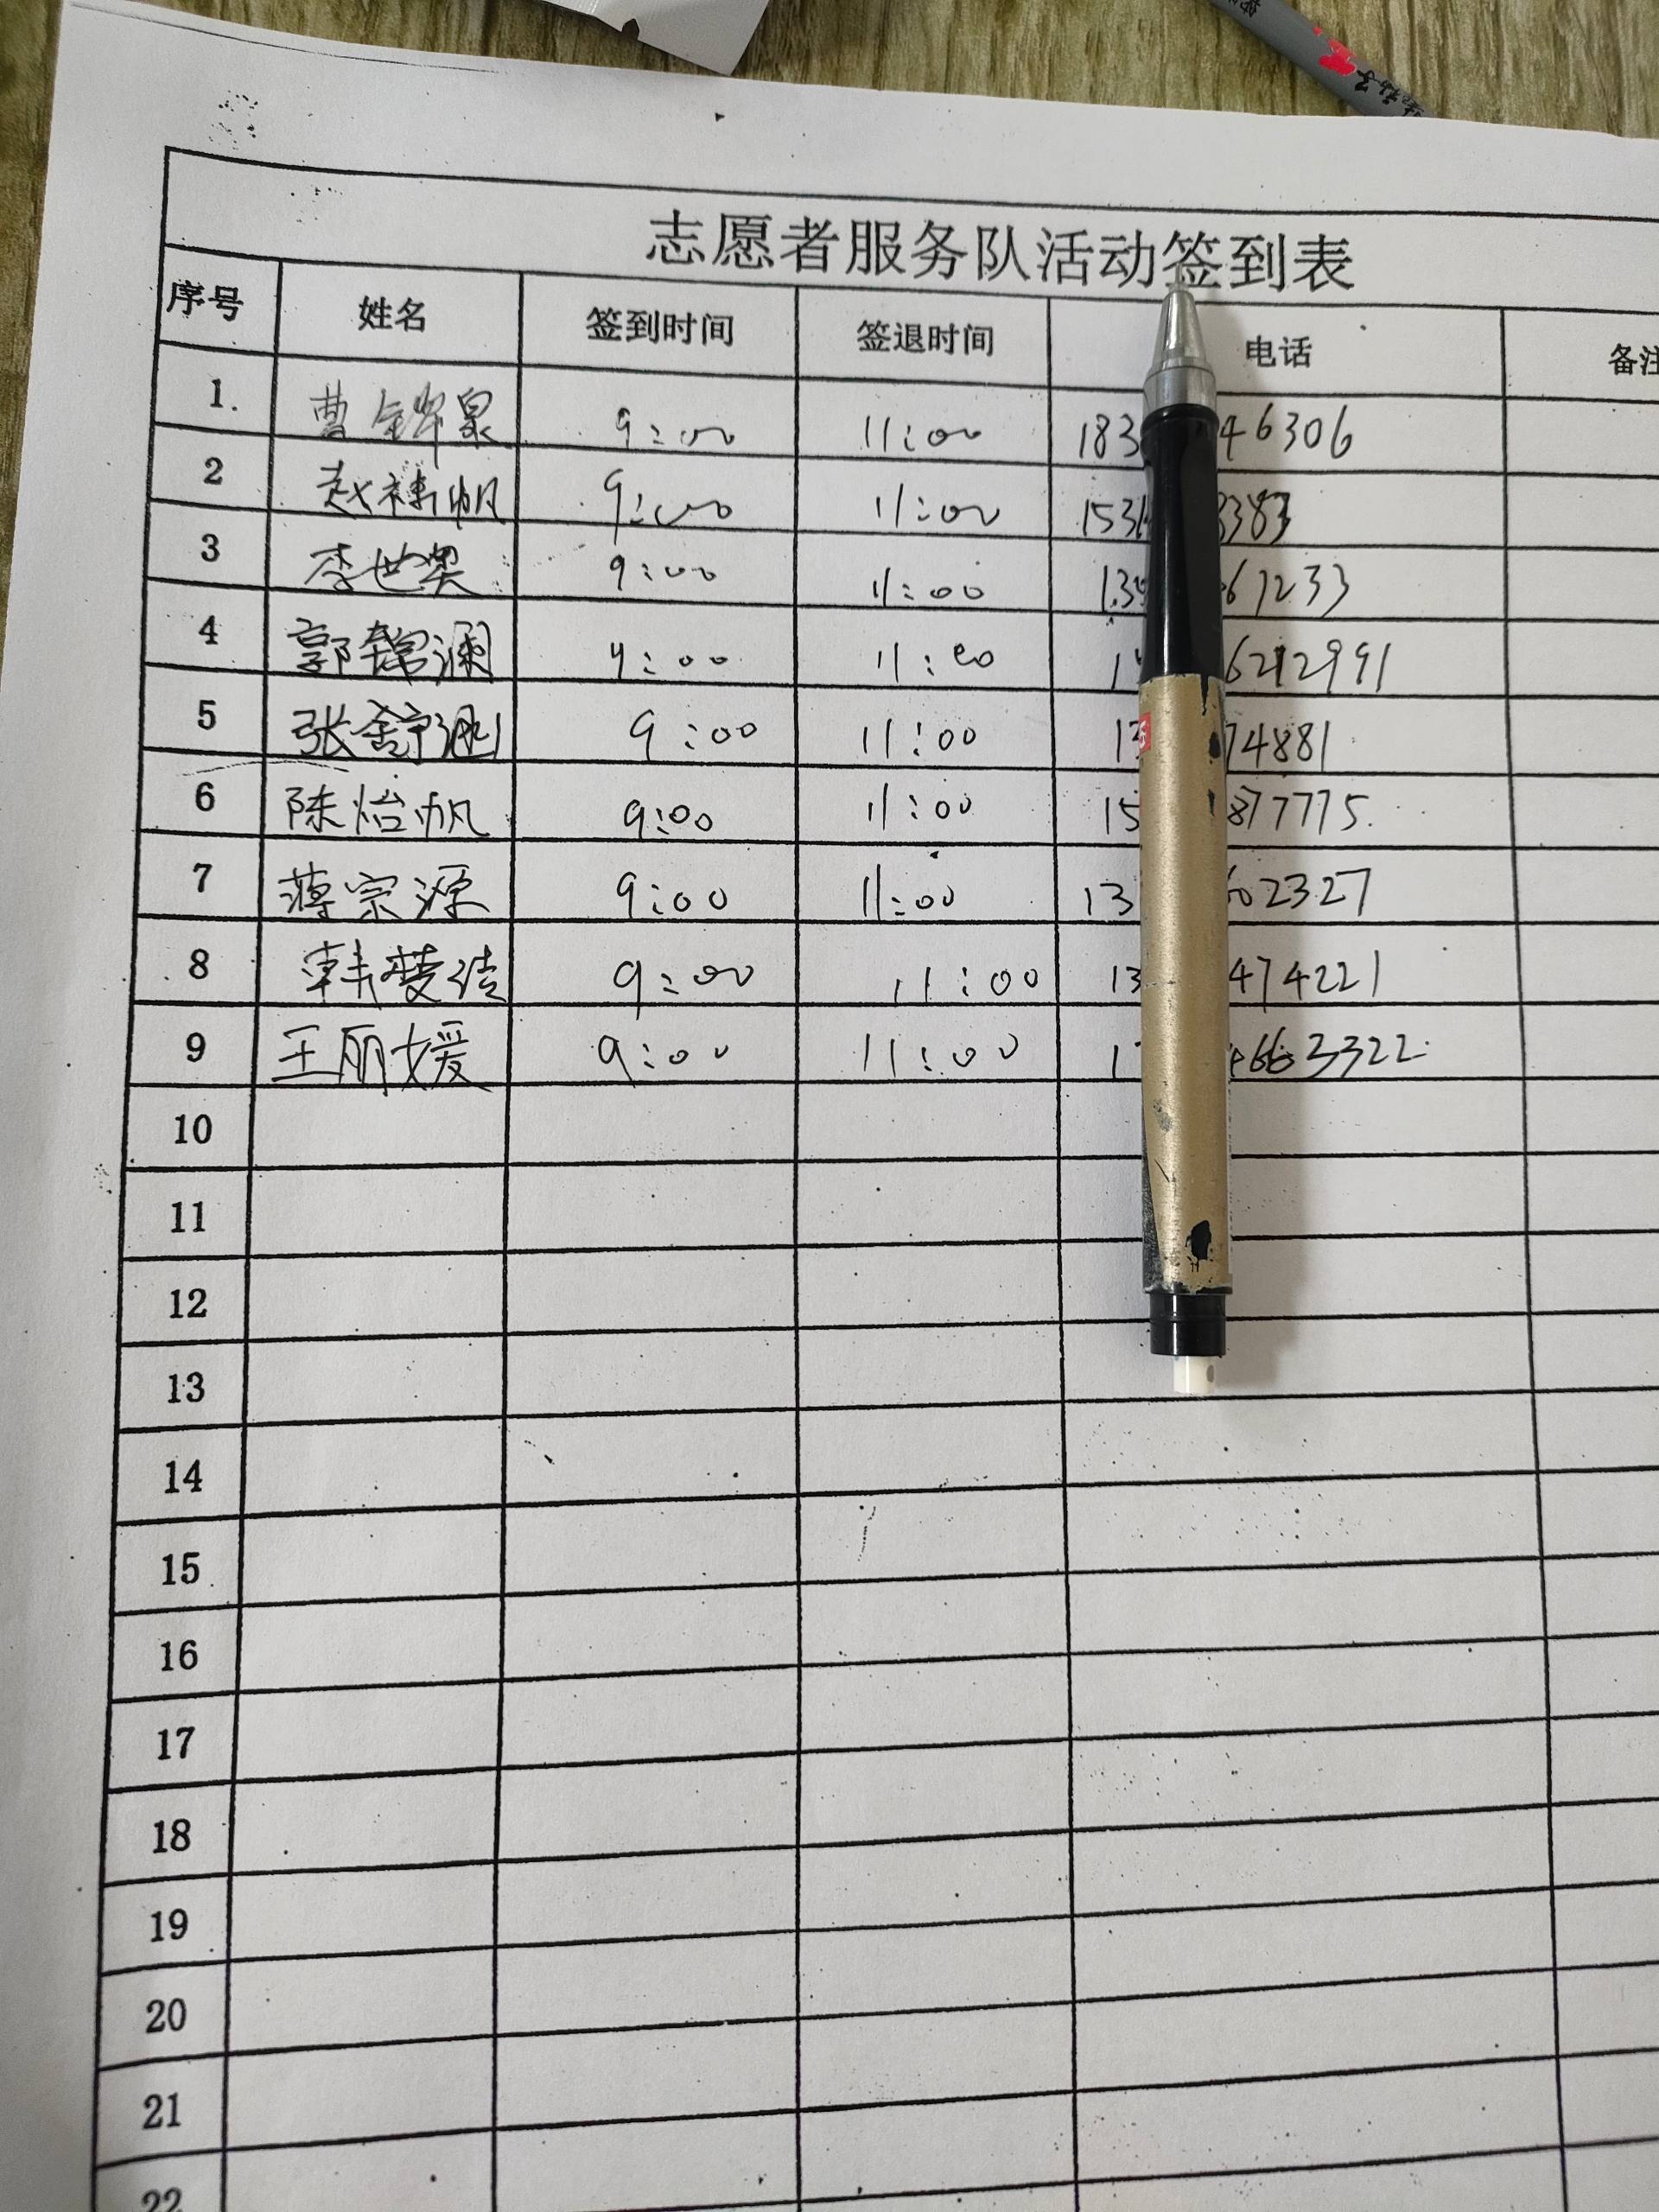 志愿者服务队活动签到表
序号 姓名 签到时间 签退时间 电话 备注
1. 曹锦泉 9:00 11:00 183 46306
2 赵祎帆 9:00 11:00 153 8383
3 李世奥 9:00 11:00 13 67233
4 郭锦澜 9:00 11:00 1 6212991
5 张舒 9:00 11:00 13 74881
6 陈怡帆 9:00 11:00 15 877775
7 薄宗源 9:00 11:00 13 602327
8 韩 9:00 11:00 13 474221
9 王丽媛 9:00 11:00 1 663322
10
11
12
13
14
15
16
17
18
19
20
21
22